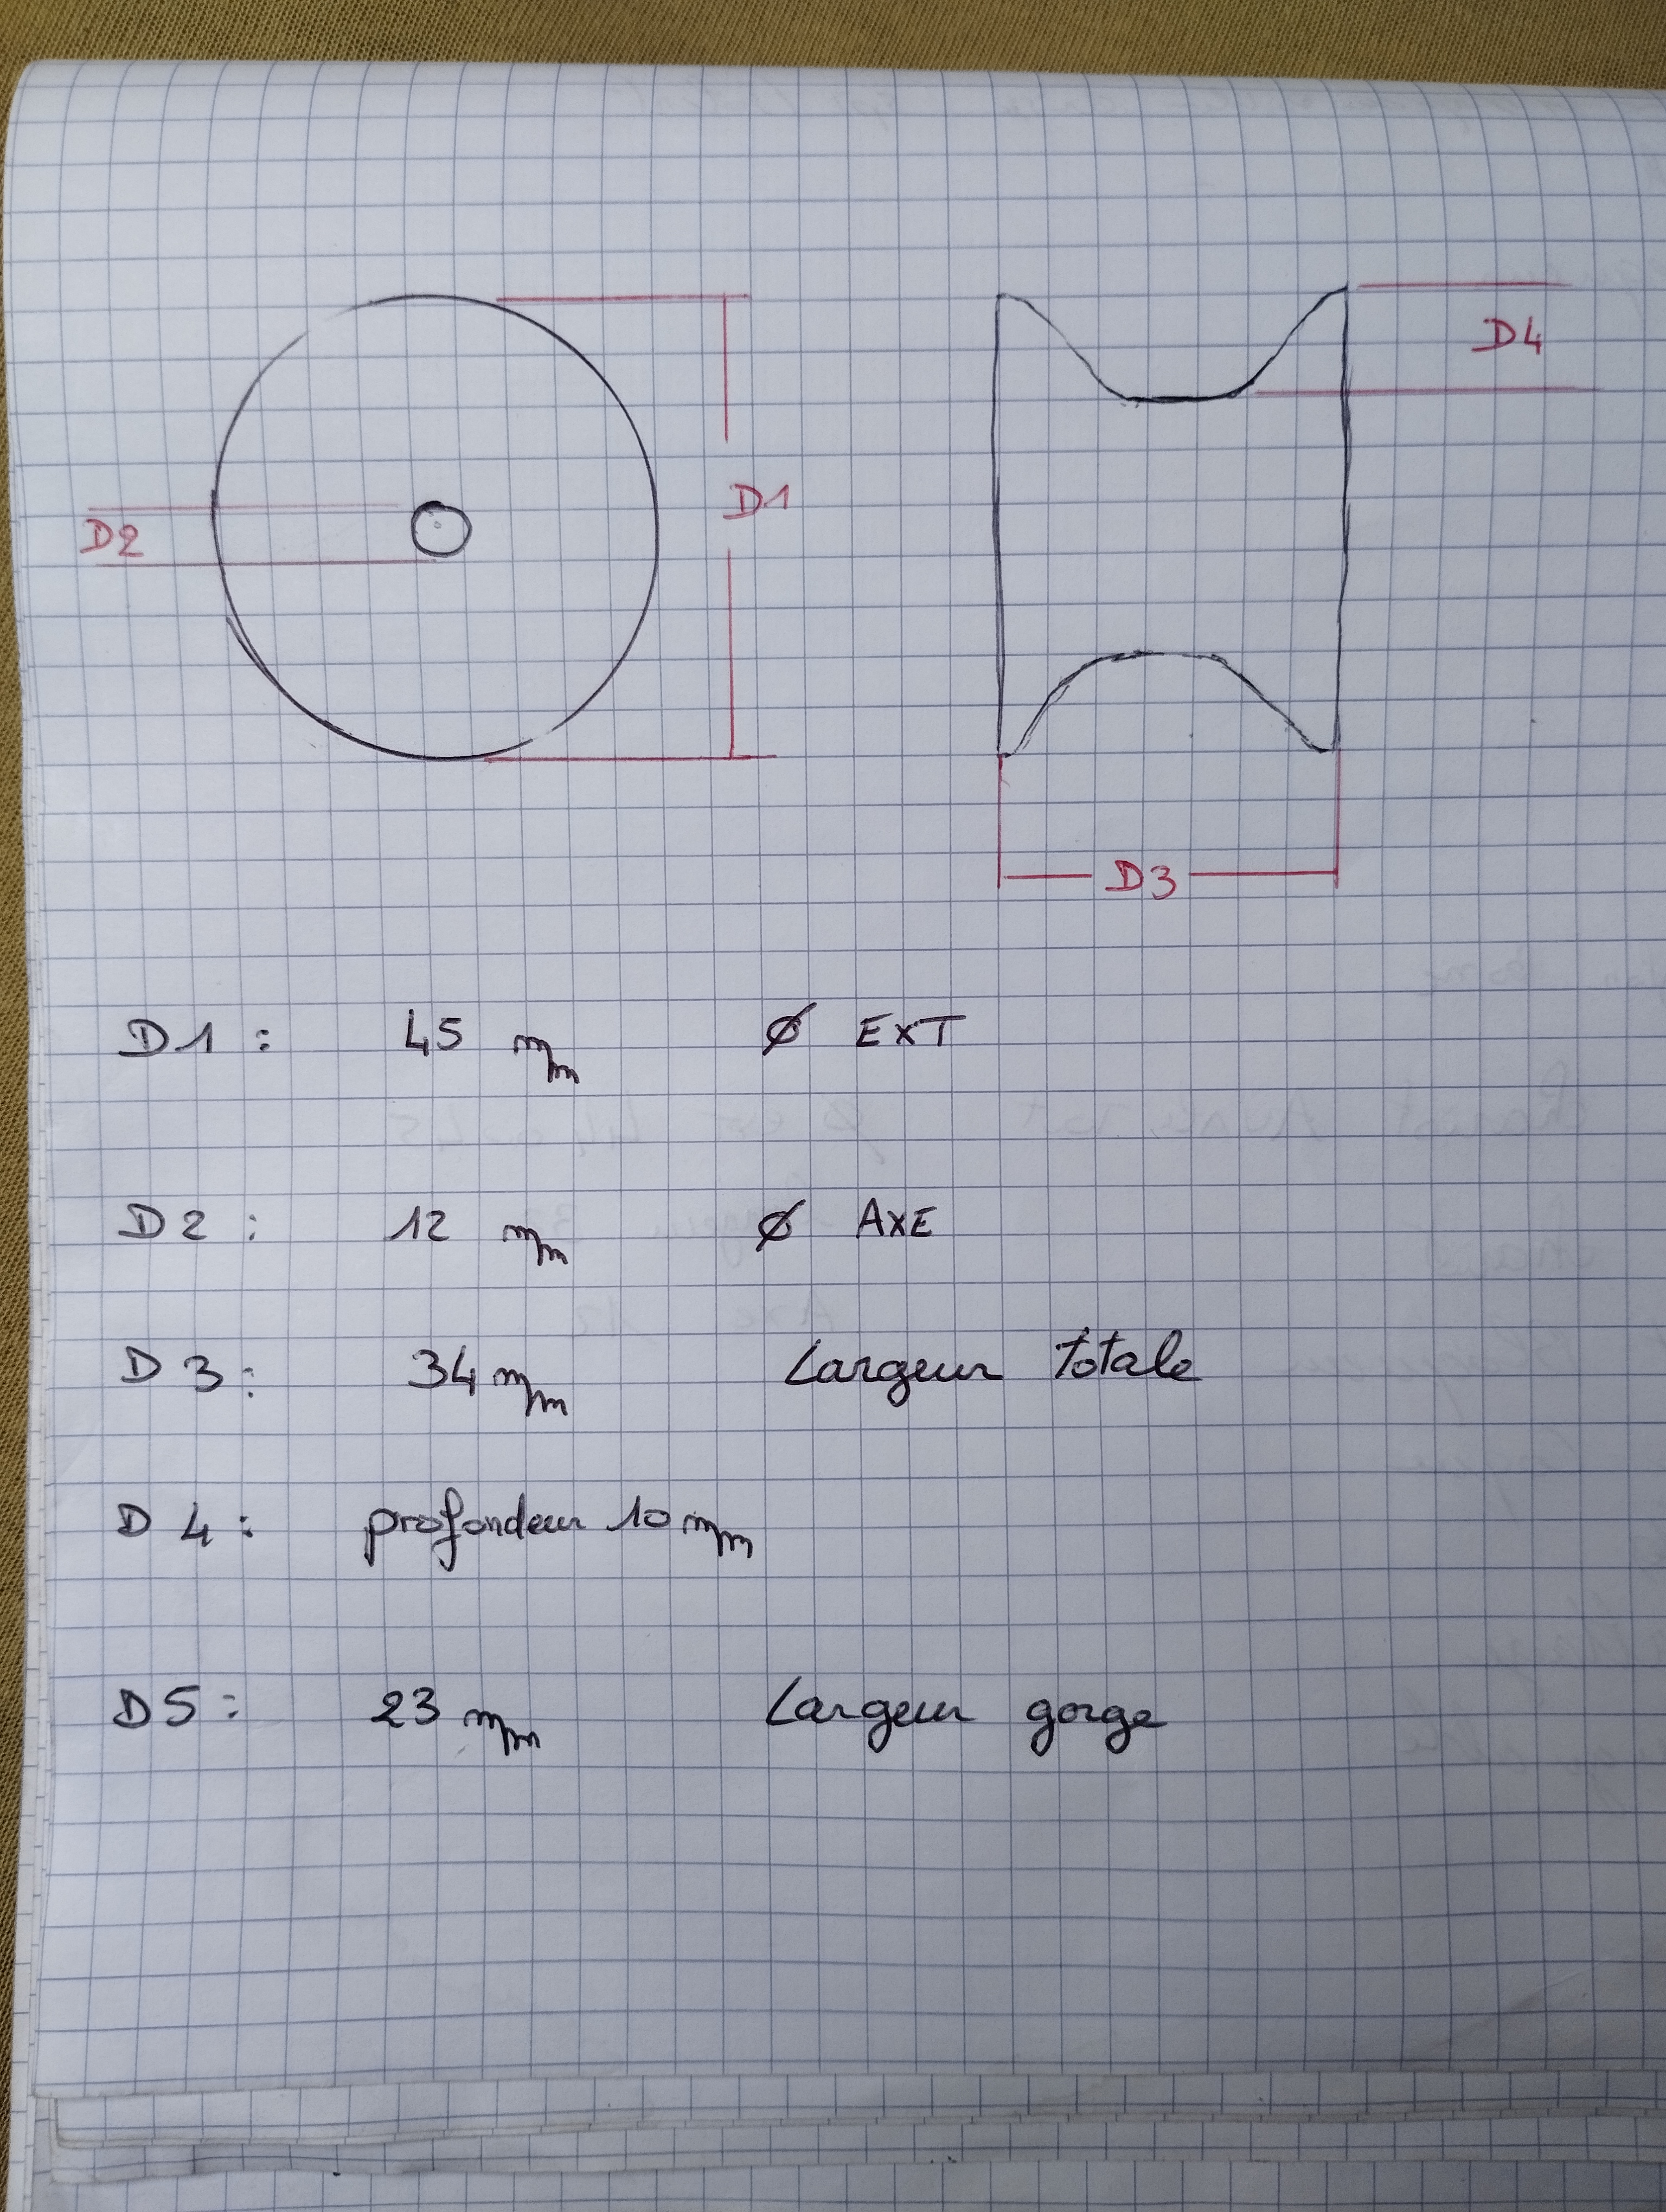 D4
D1
D2
D3
D1 : 45 mm Ø EXT
D2 : 12 mm Ø AXE
D3 : 34 mm Largeur totale
D4 : profondeur 10 mm
D5 : 23 mm Largeur gorge